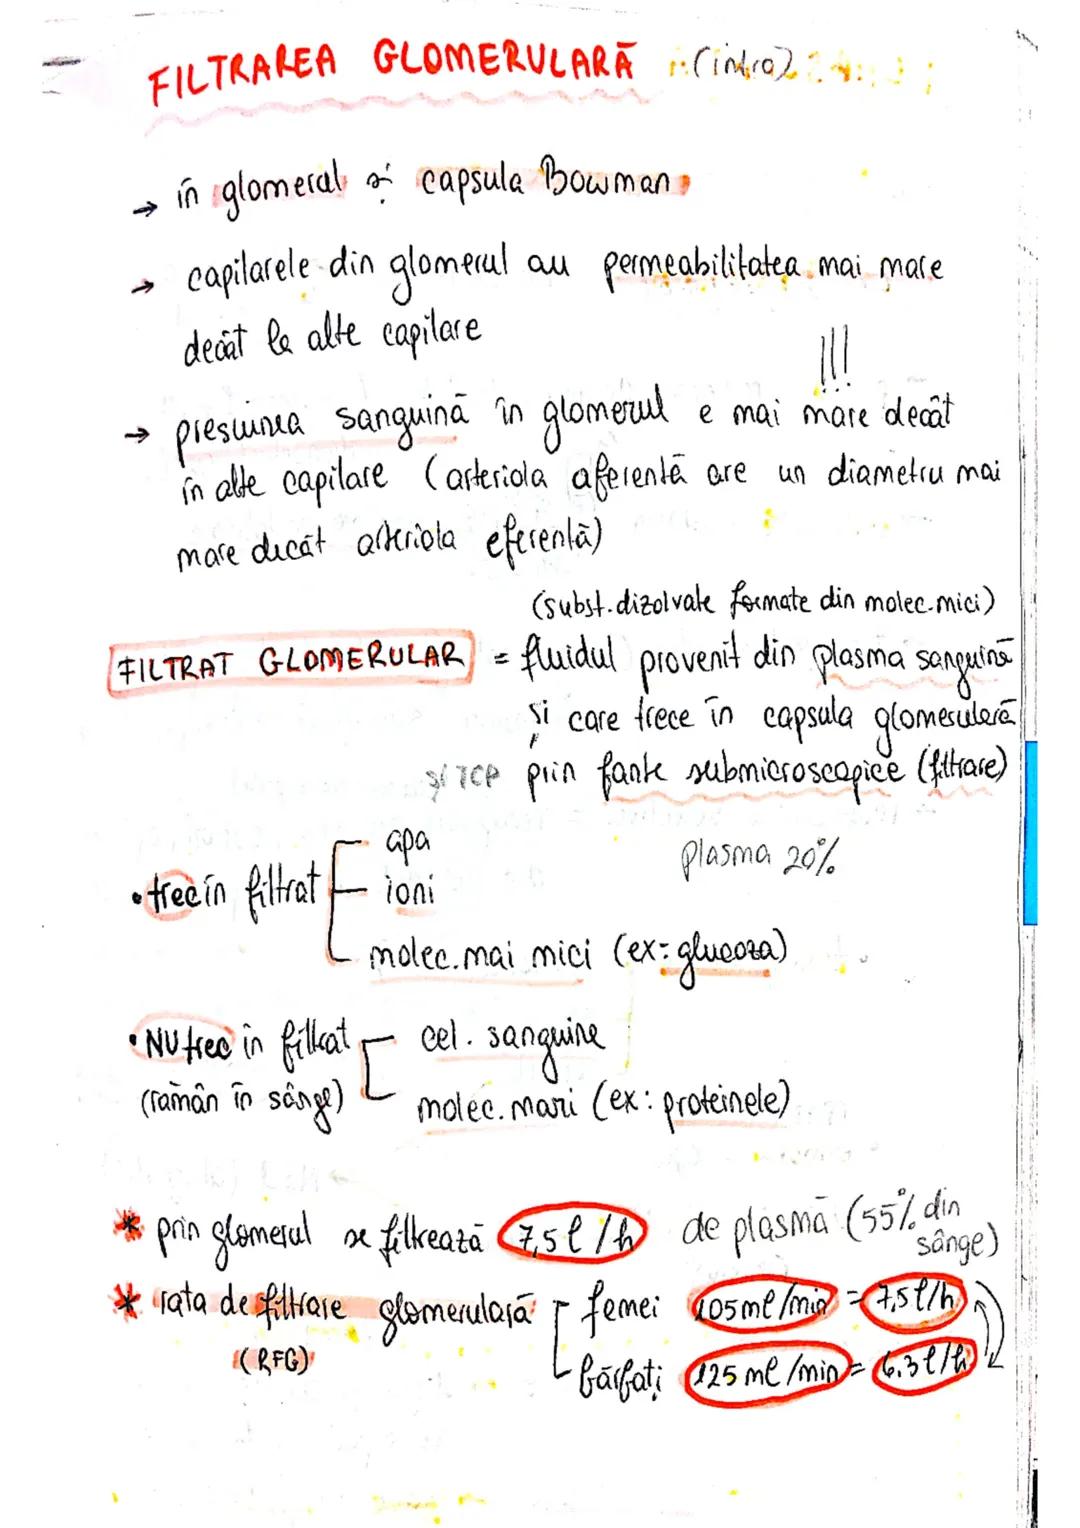 FILTRAREA GLOMERULARĂ (intro)
→ în glomerul și capsula Bowman
→ capilarele din glomerul au permeabilitatea mai mare
decât la alte capilare
!!!
→ presiunea sanguină în glomerul e mai mare decât
în alte capilare (arteriola aferentă are un diametru mai
mare decât arteriola eferentă)
(subst. dizolvate formate din molec. mici)
FILTRAT GLOMERULAR = fluidul provenit din plasma sanguină
și care trece în capsula glomerulară
și TCP prin fante submicroscopice (filtrare)
• trec în filtrat apa
ioni
molec. mai mici (ex: glucoza)
plasma 20%
• NU trec în filtrat cel. sanguine
(rămân în sânge) molec. mari (ex: proteinele)
* prin glomerul se filtrează 7,5l/h de plasmă (55% din sânge)
* rata de filtrare glomerulară femei 105ml/min = 7,5l/h
(RFG) bărbați 125 ml/min = 6,3l/h